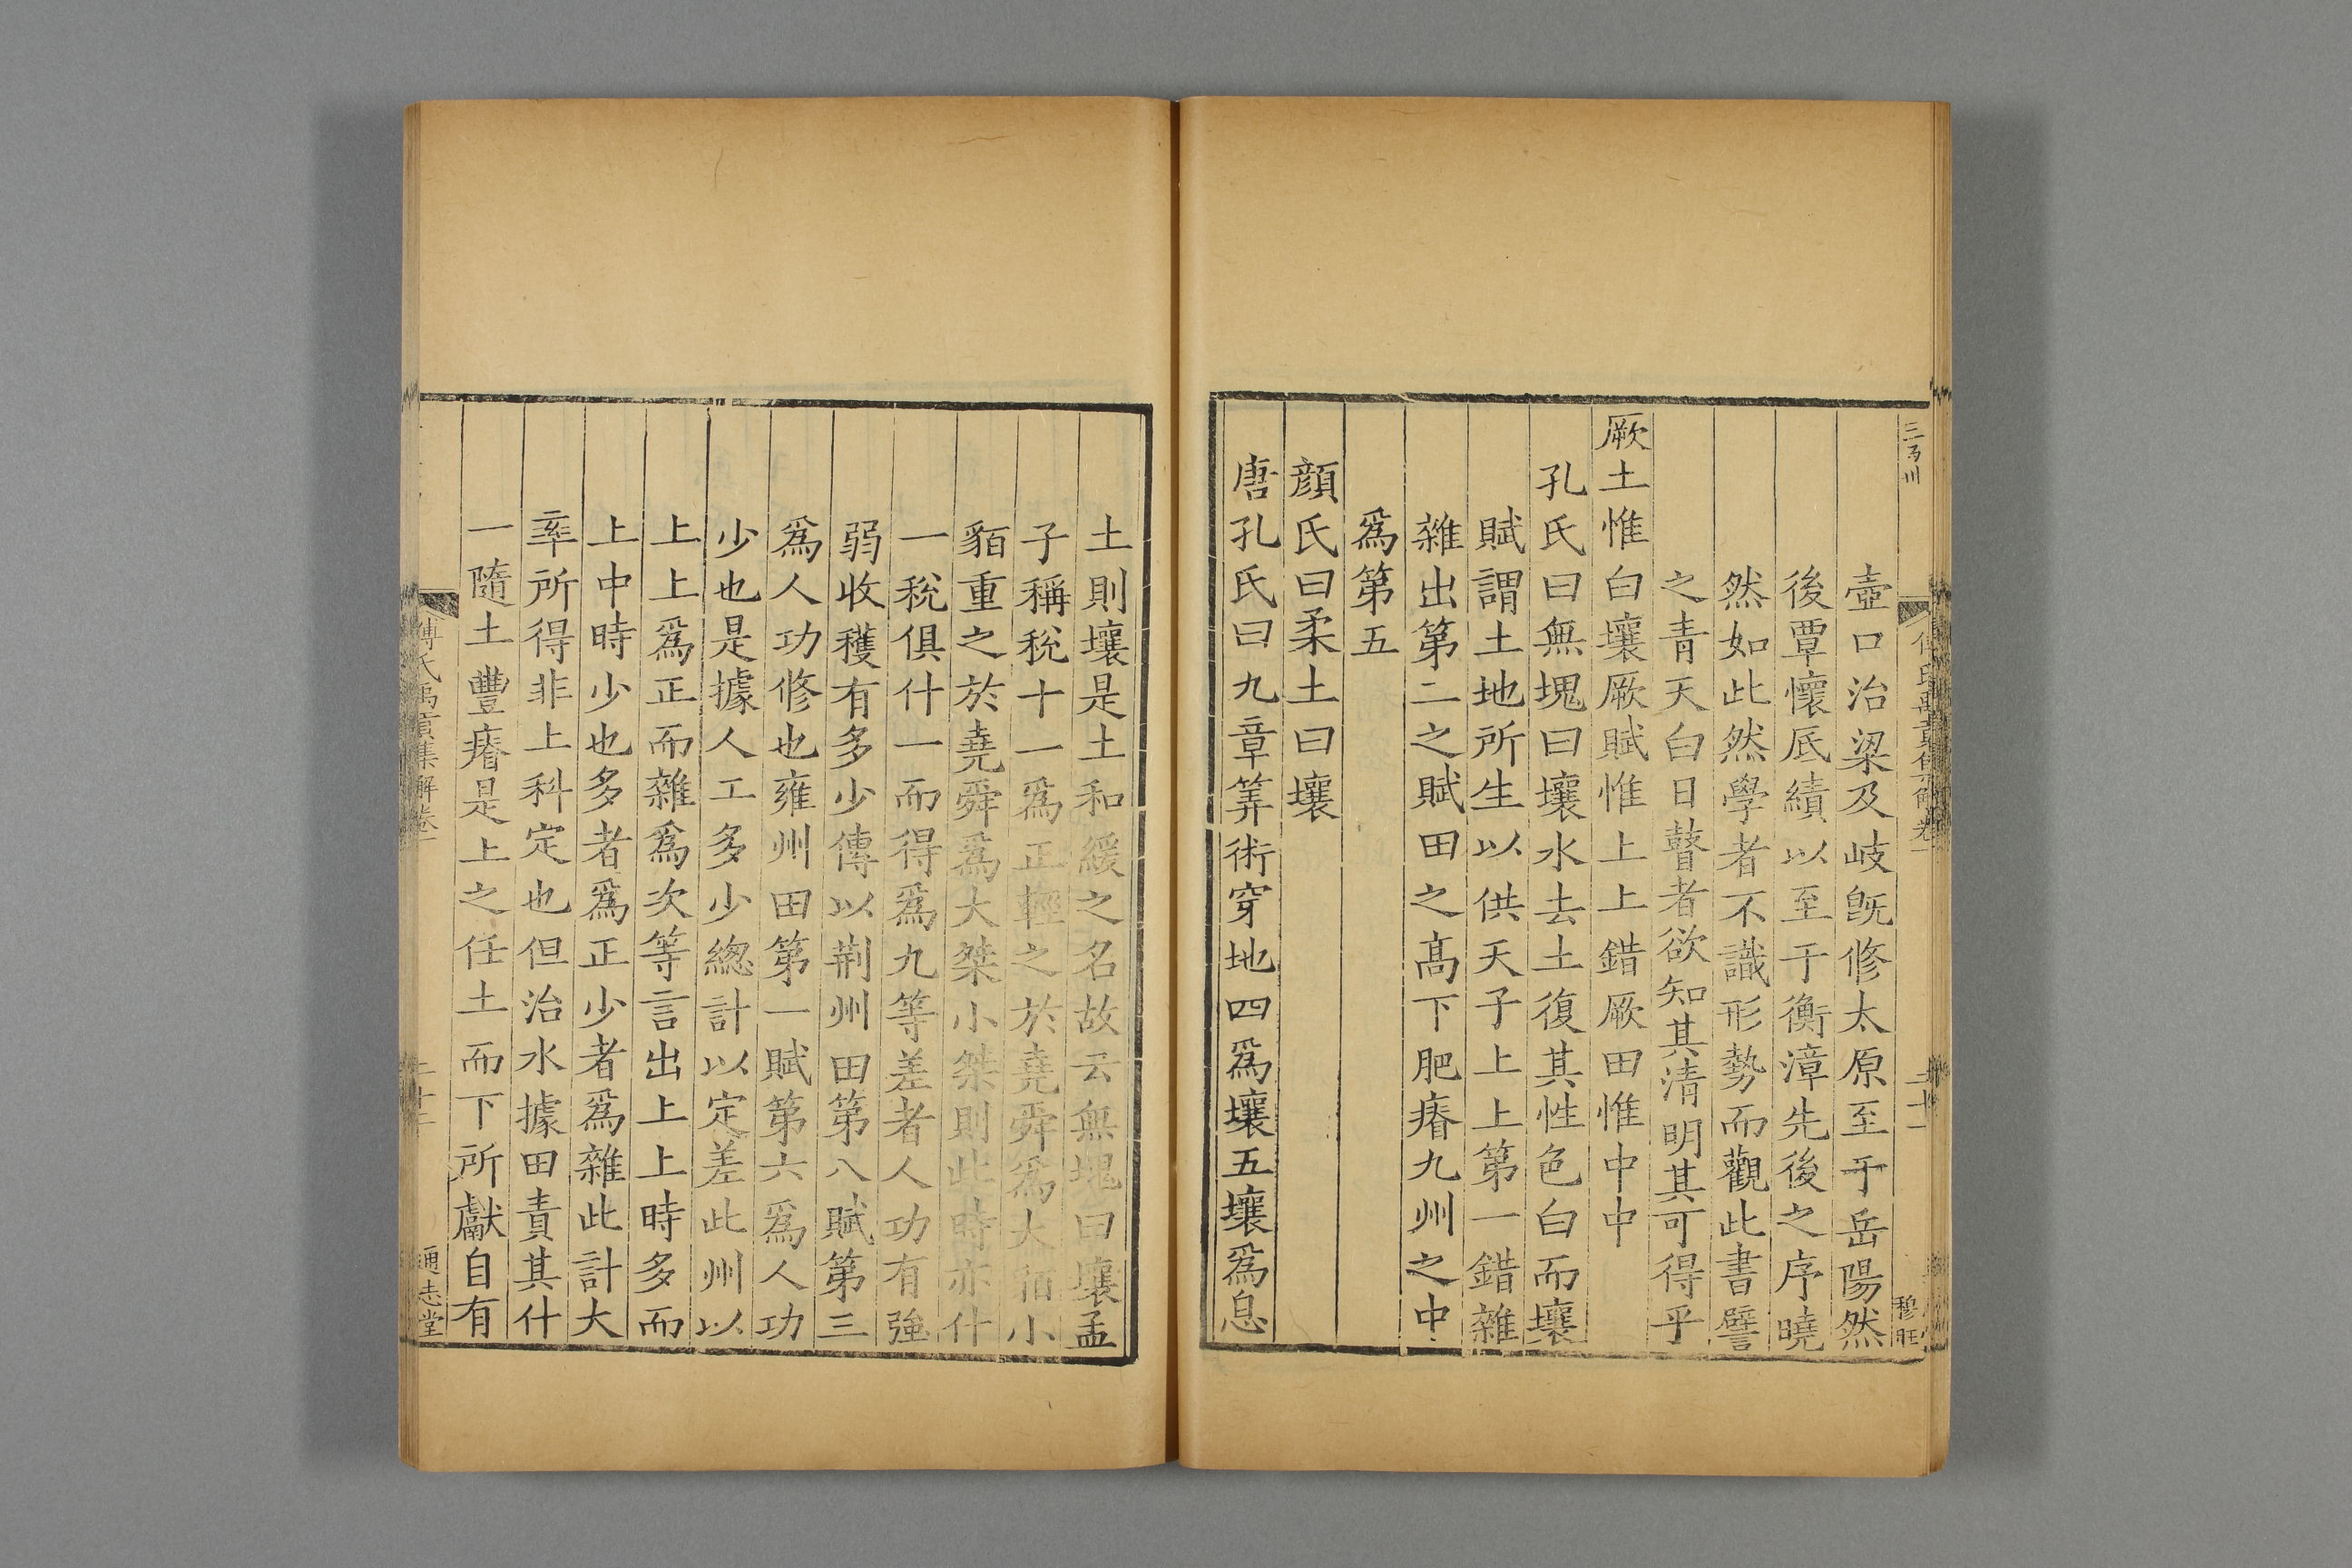 壺口治梁及岐旣修太原至于岳陽然
後覃懷厎績以至于衡漳先後之序曉
然如此然學者不識形勢而觀此書譬
之青天白日瞽者欲知其清明其可得乎
厥土惟白壤厥賦惟上上錯厥田惟中中
孔氏曰無塊曰壤水去土復其性色白而壤
賦謂土地所生以供天子上上第一錯雜
雜出第二之賦田之高下肥瘠九州之中
爲第五
顔氏曰柔土曰壤
唐孔氏曰九章筭術穿地四爲壤五壤爲息
穆旺
土則壤是土和緩之名故云無塊曰壤孟
子稱稅十一爲正輕之於堯舜爲大貊小
貊重之於堯舜爲大桀小桀則此時亦什
一稅俱什一而得爲九等差者人功有強
弱收穫有多少傳以荆州田第八賦第三
爲人功修也雍州田第一賦第六爲人功
少也是據人工多少總計以定差此州以
上上爲正而雜爲次等言出上上時多而
上中時少也多者爲正少者爲雜此計大
率所得非上科定也但治水據田責其什
一隨土豐瘠是上之任土而下所獻自有
傅氏禹貢集解卷一
通志堂